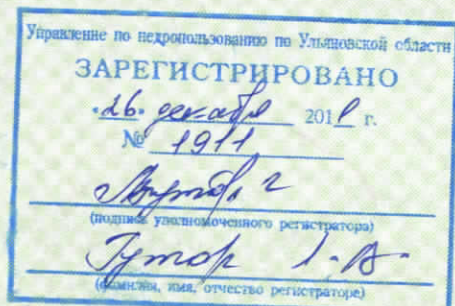 Управление по недропользованию по Ульяновской области
ЗАРЕГИСТРИРОВАНО
"26" декабря 201 г.
№ 1911
(подпись уполномоченного регистратора)
Гутор
(фамилия, имя, отчество регистратора)